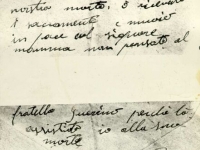 nostra morto, e ricevuto
i sacramenti, e muorio
in pace col signiore
mamma non pensate al
fratello guerino perché lo
assistito io alla sua
morte